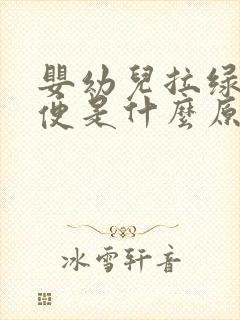 嬰幼兒拉绿
便是什麼原
冰雪轩音